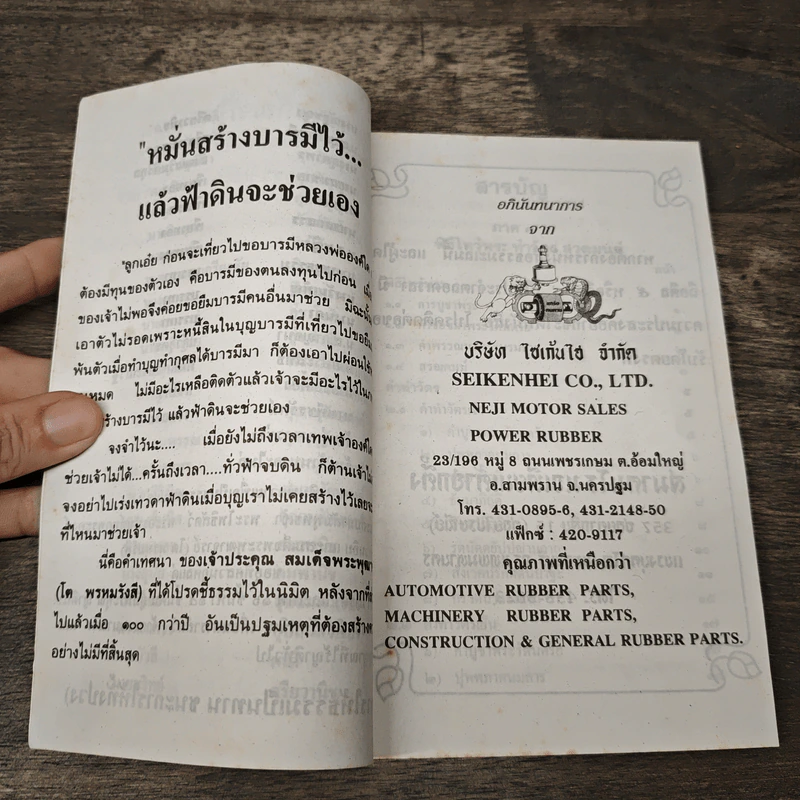 "หมั่นสร้างบารมีไว้...
แล้วฟ้าดินจะช่วยเอง
"ลูกเอ๋ย ก่อนจะเที่ยวไปขอบารมีหลวงพ่อองค์ใด
ต้องมีทุนของตัวเอง คือบารมีของตนลงทุนไปก่อน เมื่อ
ของเจ้าไม่พอจึงค่อยขอยืมบารมีคนอื่นมาช่วย มิฉะนั้น
เอาตัวไม่รอดเพราะหนี้สินในบุญบารมีที่เที่ยวไปขอยืม
พ้นตัวเมื่อทำบุญทำกุศลได้บารมีมา ก็ต้องเอาไปผ่อนใช้
หมด ไม่มีอะไรเหลือติดตัวแล้วเจ้าจะมีอะไรไว้ใน
สร้างบารมีไว้ แล้วฟ้าดินจะช่วยเอง
จงจำไว้นะ.... เมื่อยังไม่ถึงเวลาเทพเจ้าองค์ใด
ช่วยเจ้าไม่ได้...ครั้นถึงเวลา....ทั่วฟ้าจบดิน ก็ต้านเจ้าไม่
จงอย่าไปเร่งเทวดาฟ้าดินเมื่อบุญเราไม่เคยสร้างไว้เลย
ที่ไหนมาช่วยเจ้า
นี่คือคำเทศนา ของเจ้าประคุณ สมเด็จพระพุฒา
(โต พรหมรังสี) ที่ได้โปรดชี้ธรรมไว้ในนิมิต หลังจากที่
ไปแล้วเมื่อ ๑๐๐ กว่าปี อันเป็นปฐมเหตุที่ต้องสร้าง
อย่างไม่มีที่สิ้นสุด
อภินันทนาการ
จาก
บริษัท ไซเก้นไฮ จำกัด
SEIKENHEI CO., LTD.
NEJI MOTOR SALES
POWER RUBBER
23/196 หมู่ 8 ถนนเพชรเกษม ต.อ้อมใหญ่
อ.สามพราน จ.นครปฐม
โทร. 431-0895-6, 431-2148-50
แฟ็กซ์ : 420-9117
คุณภาพที่เหนือกว่า
AUTOMOTIVE RUBBER PARTS,
MACHINERY RUBBER PARTS,
CONSTRUCTION & GENERAL RUBBER PARTS.